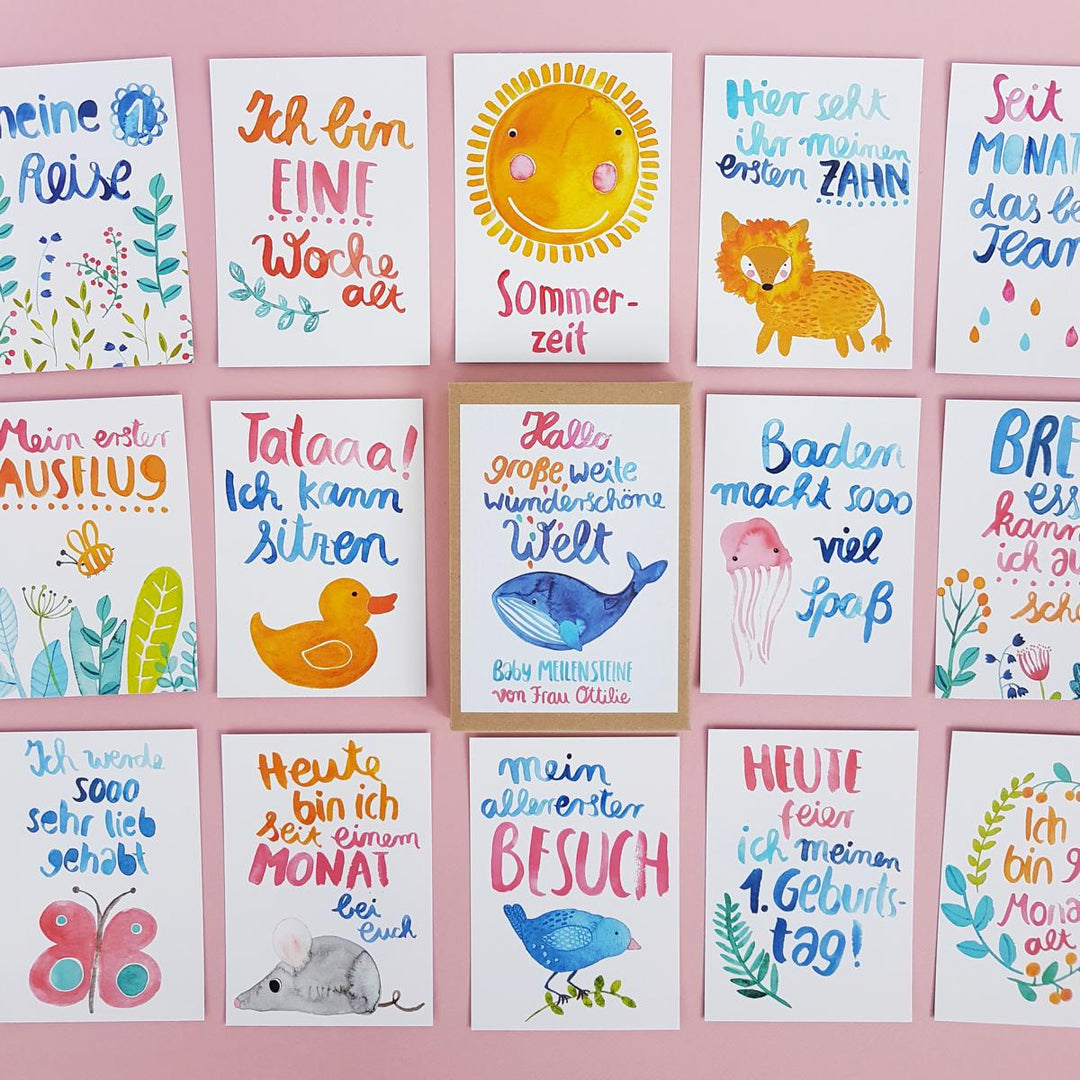 meine 1
Reise
Ich bin
EINE
Woche
alt
Sommer-
zeit
Hier seht
ihr meinen
ersten ZAHN
Seit
das
Mein erster
AUSFLUG
Tataaa!
Ich kann
sitzen
Hallo
große, weite
wunderschöne
Welt
Baby MEILENSTEINE
von Frau Ottilie
Baden
macht sooo
viel
Spaß
BREI
kann
ich
Ich werde
sooo
sehr lieb
gehabt
Heute
bin ich
seit einem
MONAT
bei
euch
mein
allererster
BESUCH
HEUTE
feier
ich meinen
1. Geburts-
tag!
Ich
bin
alt